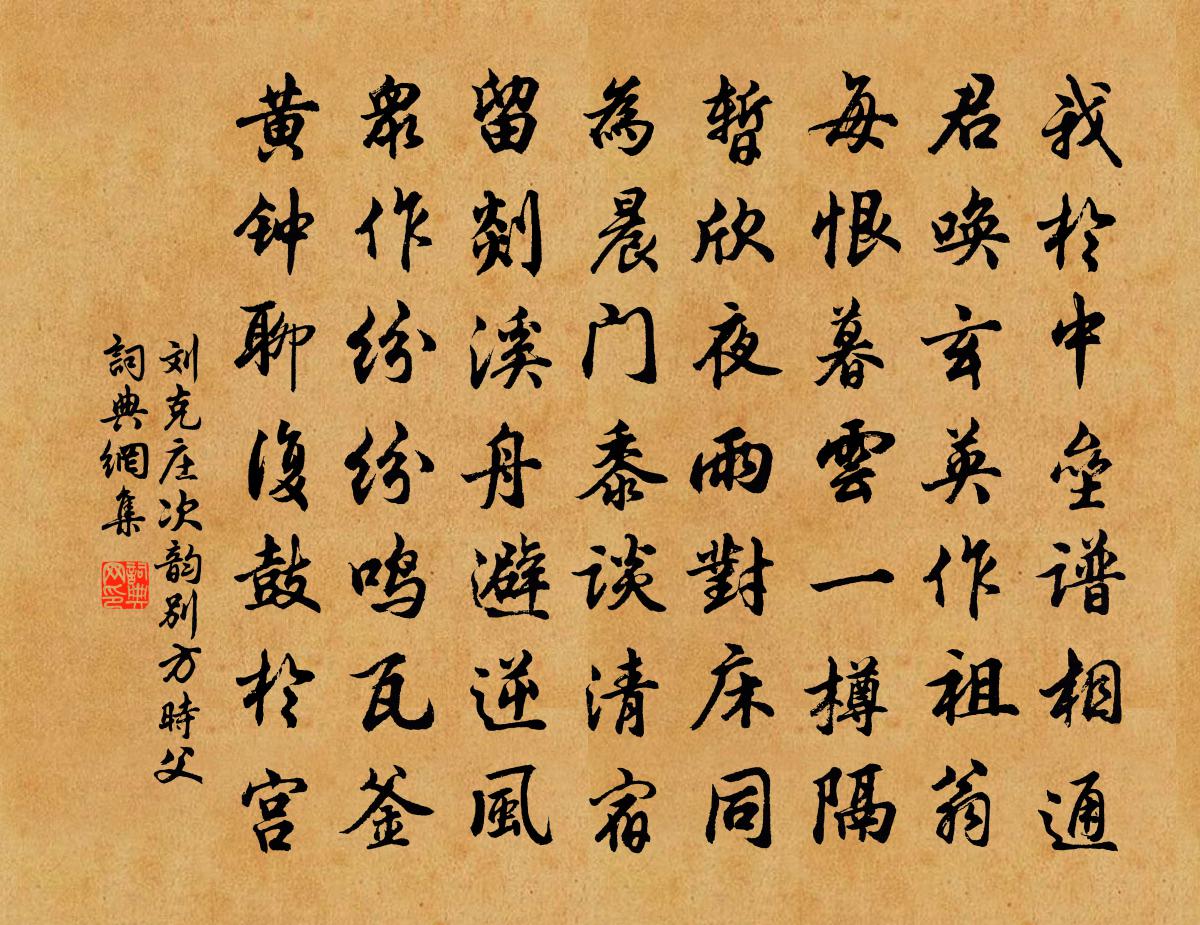 我於中垒谱相通
君唤玄英作祖翁
每恨暮雲一樽隔
暫欣夜雨對床同
為晨门黍談清宿
留剡溪舟避逆風
眾作纷纷鸣瓦釜
黄钟聊復鼓於宫
刘克庄次韵别方時父
詞典網集
詞典网印